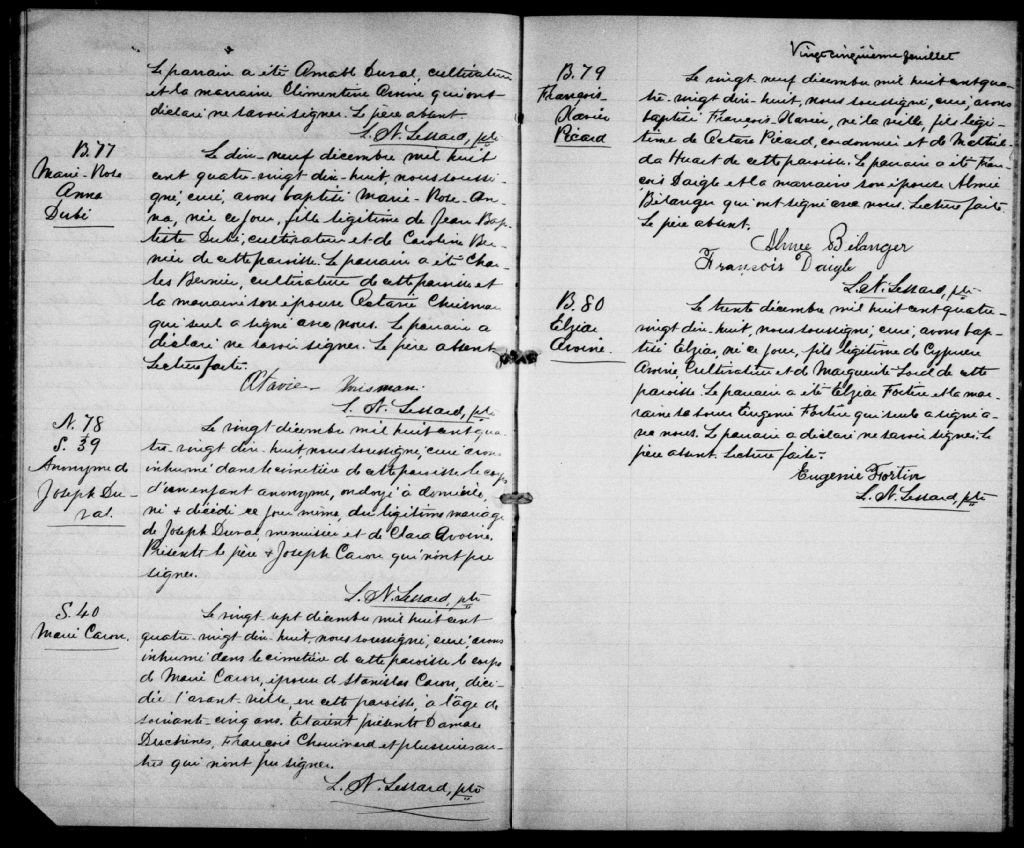 Le parrain a été Amable Duval, cultivateur
et la marraine Clémentine Avoine qui ont
déclaré ne savoir signer. Le père absent.
L. N. Lessard, ptre
B. 77
Marie-Rose
Anna
Dubé
Le dix-neuf décembre mil huit
cent quatre-vingt dix-huit, nous soussi-
gné, curé, avons baptisé Marie-Rose-An-
na, née ce jour, fille légitime de Jean Bap-
tiste Dubé, cultivateur et de Caroline Ber-
nier de cette paroisse. Le parrain a été Char-
les Bernier, cultivateur de cette paroisse et
la marraine son épouse Octavie
qui seule a signé avec nous. Le parrain a
déclaré ne savoir signer. Le père absent.
Lecture faite.
L. N. Lessard, ptre
N. 78
S. 39
Anonyme de
Joseph Du-
val.
Le vingt décembre mil huit cent qua-
tre-vingt dix-huit, nous soussigné, curé avons
inhumé dans le cimetière de cette paroisse le corps
d'un enfant anonyme, ondoyé à domicile,
né & décédé ce jour même, du légitime mariage
de Joseph Duval, menuisier et de Clara Avoine.
Présents le père & Joseph Caron qui n'ont pu
signer.
L. N. Lessard, ptre
S. 40
Marie Caron.
Le vingt sept décembre mil huit cent
quatre-vingt dix-huit, nous soussigné, curé, avons
inhumé dans le cimetière de cette paroisse le corps
de Marie Caron, épouse de Stanislas Caron, décé-
dée l'avant-veille, en cette paroisse, à l'âge de
soixante-cinq ans. Etaient présents Damase
Deschènes, François Chouinard et plusieurs au-
tres qui n'ont pu signer.
L. N. Lessard, ptre
Vingt-cinquième feuillet
B. 79
François-
Xavier
Picard
Le vingt neuf décembre mil huit cent qua-
tre-vingt dix-huit, nous soussigné, curé, avons
baptisé François-Xavier, né la veille, fils légi-
time de Octave Picard, cordonnier et de Mathil-
da Huart de cette paroisse. Le parrain a été Fran-
çois Daigle et la marraine son épouse Almée
Bélanger qui ont signé avec nous. Lecture faite.
Le père absent.
Almée Bélanger
François Daigle
L. N. Lessard, ptre
B. 80
Elzéar
Avoine.
Le trente décembre mil huit cent quatre-
vingt dix-huit, nous soussigné, curé, avons bap-
tisé Elzéar, né ce jour, fils légitime de Cyprien
Avoine, Cultivateur et de Marguerite Lord de cette
paroisse. Le parrain a été Elzéar Fortin et la mar-
raine sa soeur Eugénie Fortin qui seule a signé a-
vec nous. Le parrain a déclaré ne savoir signer. Le
père absent. Lecture faite.
Eugenie Fortin
L. N. Lessard, ptre